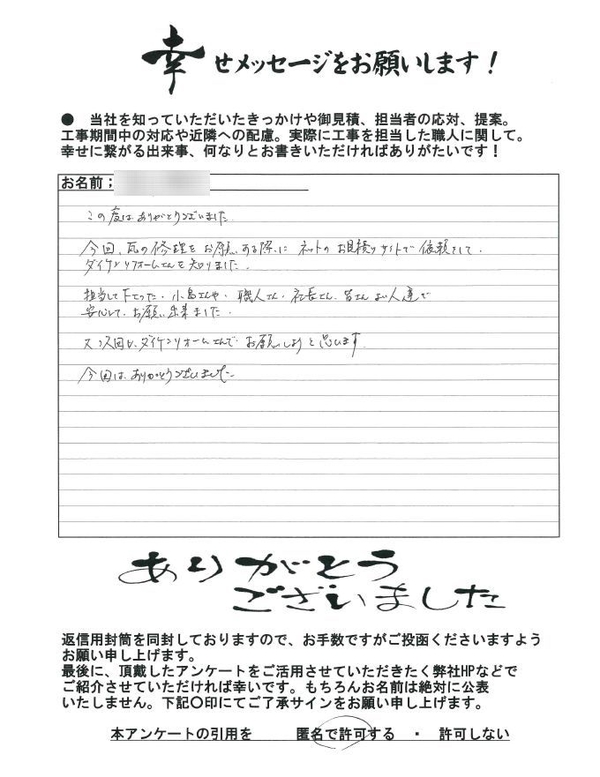 幸せメッセージをお願いします！
● 当社を知っていただいたきっかけや御見積、担当者の応対、提案。
工事期間中の対応や近隣への配慮。実際に工事を担当した職人に関して。
幸せに繋がる出来事、何なりとお書きいただければありがたいです！
お名前；
この度はありがとうございました
今回、瓦の修理をお願いする際にネットのお見積りサイトで依頼をして、
ダイケンリフォームさんを知りました。
担当して下さった、小島さんや、職人さん、社長さん、皆さん良い人達で
安心して、お願い出来ました。
又次回も、ダイケンリフォームさんで お願いしようと思います
今回は、ありがとうございました
ありがとう
ございました
返信用封筒を同封しておりますので、お手数ですがご投函くださいますよう
お願い申し上げます。
最後に、頂戴したアンケートをご活用させていただきたく弊社HPなどで
ご紹介させていただければ幸いです。もちろんお名前は絶対に公表
いたしません。下記〇印にてご了承サインをお願い申し上げます。
本アンケートの引用を 匿名で許可する ・ 許可しない